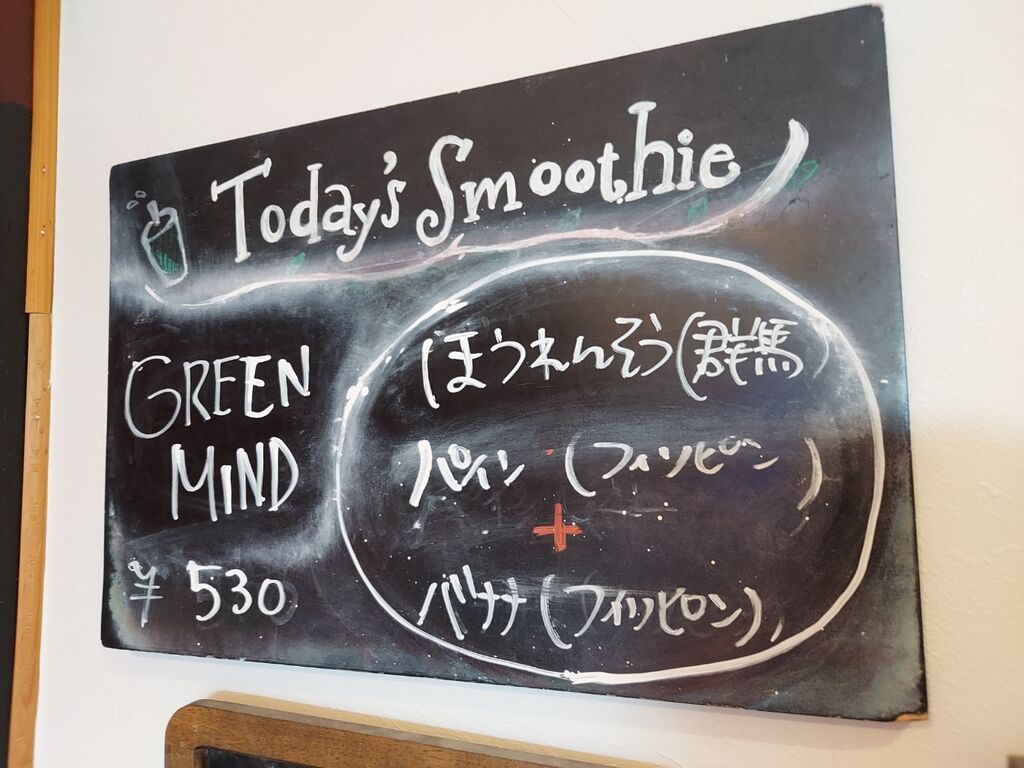 Today's Smoothie
GREEN
MIND
¥ 530
ほうれんそう(群馬)
パイン (フィリピン)
+
バナナ(フィリピン)